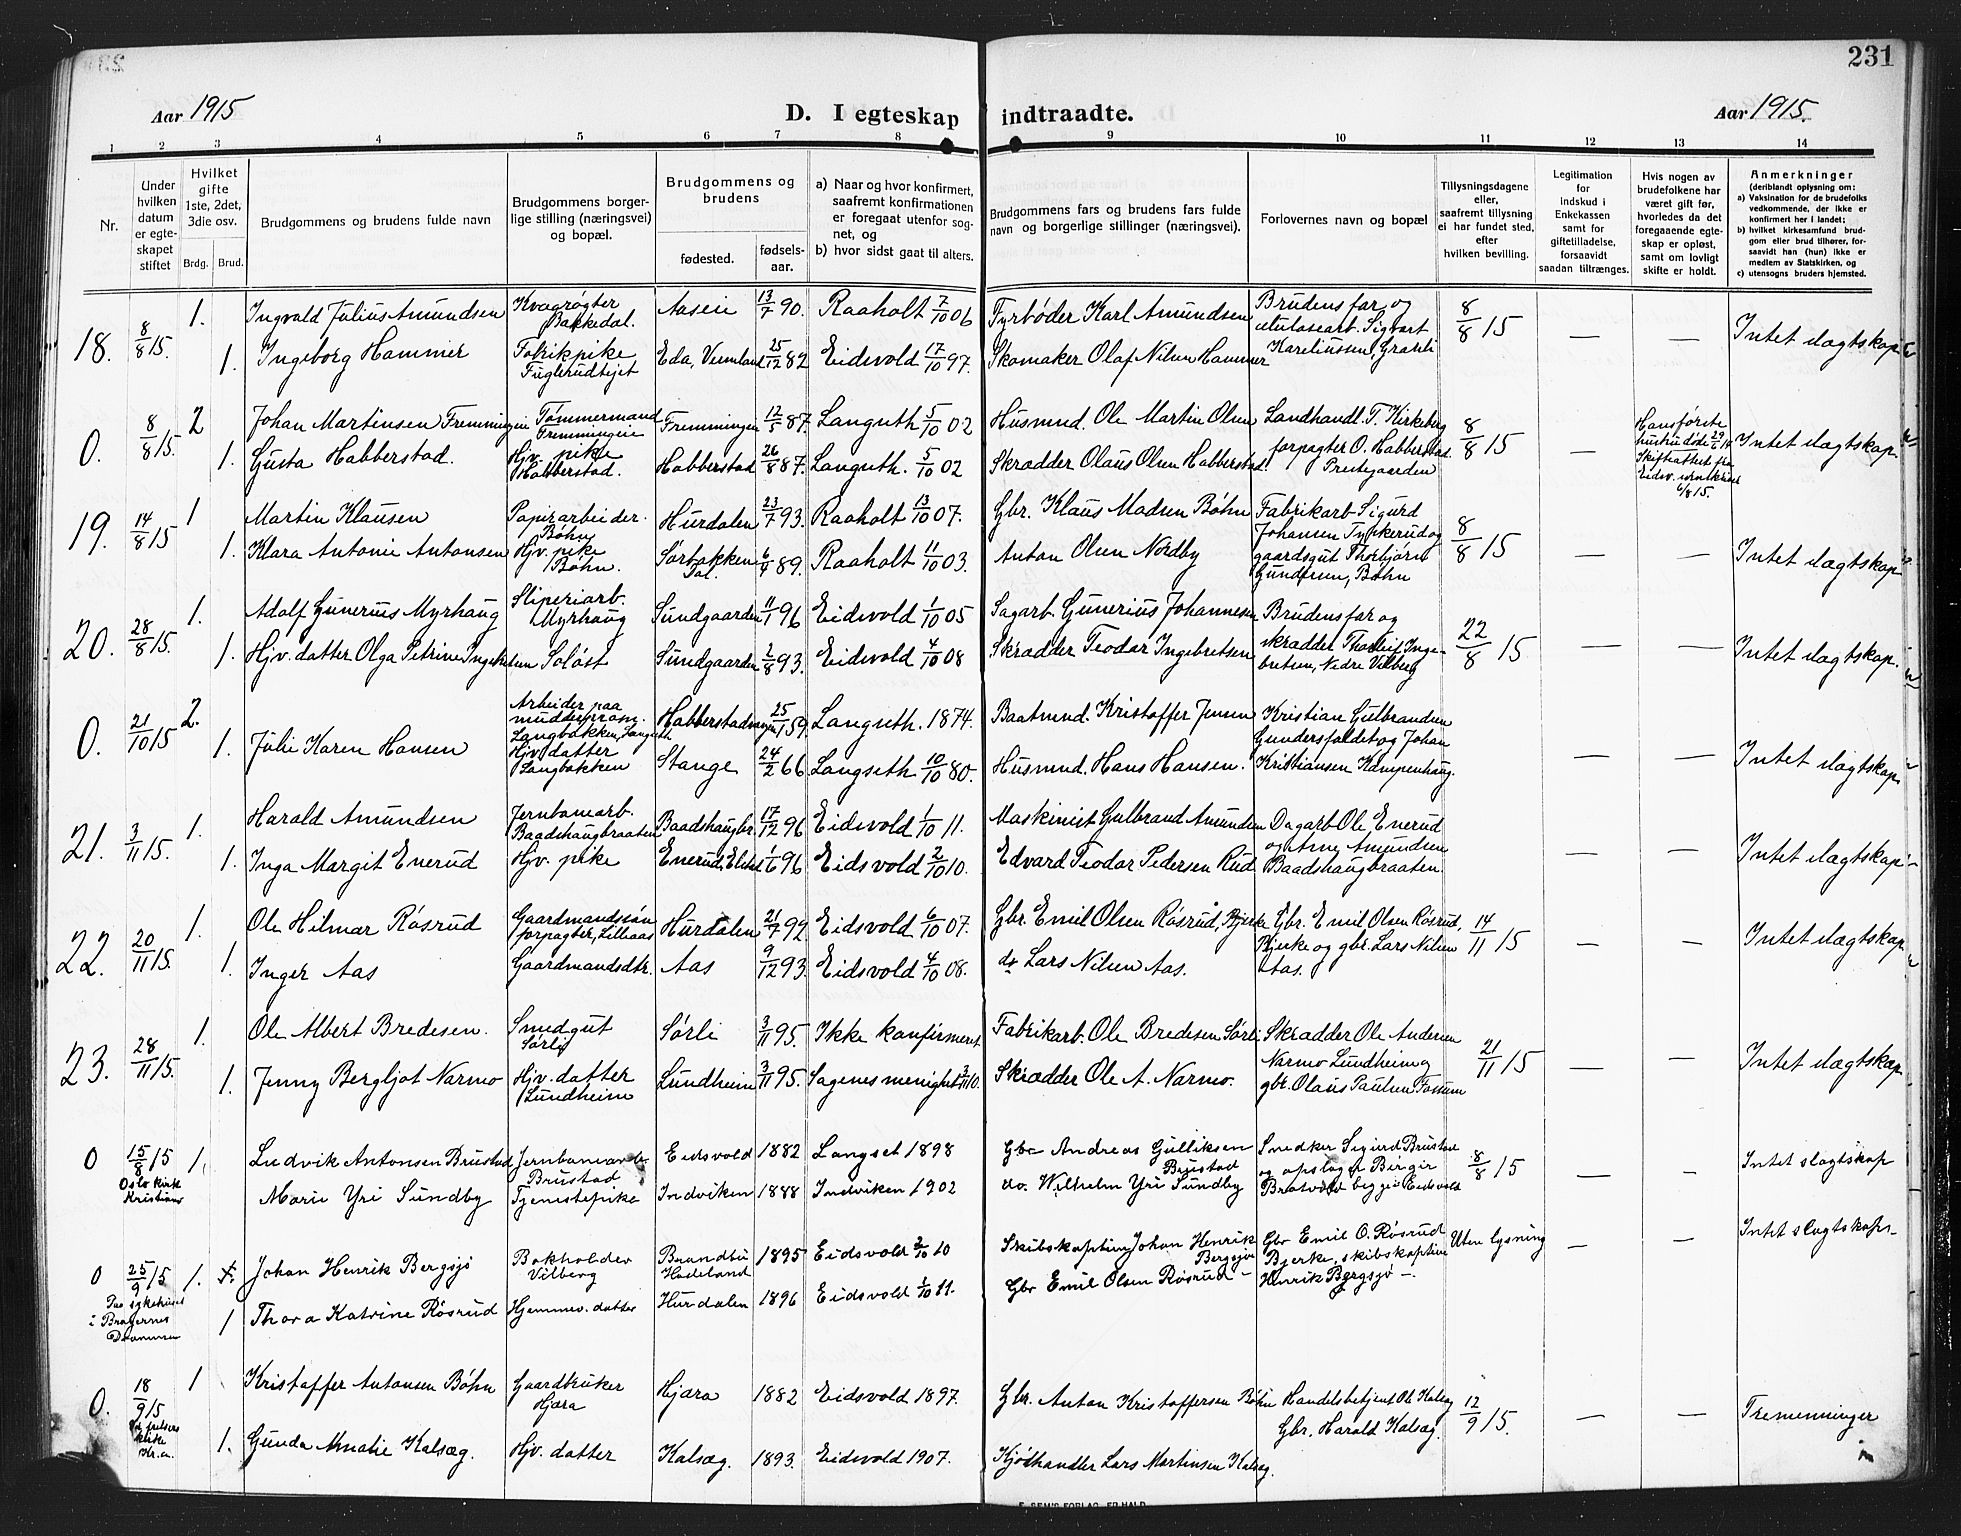 231
Aar 1915
D. I egteskap indtraadte.
Aar 1915.
1 2 3 4 5 6 7 8 9 10 11 12 13 14
Nr.
Under hvilken datum er egteskapet stiftet
Hvilket gifte 1ste, 2det, 3die osv.
Brdg. Brud.
Brudgommens og brudens fulde navn
Brudgommens borgerlige stilling (næringsvei) og bopæl.
Brudgommens og brudens
fødested.
fødselsaar.
a) Naar og hvor konfirmert, saafremt konfirmationen er foregaat utenfor sognet, og
b) hvor sidst gaat til alters.
Brudgommens fars og brudens fars fulde navn og borgerlige stillinger (næringsvei).
Forlovernes navn og bopæl
Tillysningsdagene eller, saafremt tillysning ei har fundet sted, efter hvilken bevilling.
Legitimation for indskud i Enkekassen samt for giftetilladelse, forsaavidt saadan tiltrænges.
Hvis nogen av brudefolkene har været gift før, hvorledes da det foregaaende egteskap er opløst, samt om lovligt skifte er holdt.
Anmerkninger
(deriblandt oplysning om:
a) Vaksination for de brudefolks vedkommende, der ikke er konfirmert her i landet;
b) hvilket kirkesamfund brudgom eller brud tilhører, forsaavidt han (hun) ikke er medlem av Statskirken, og
c) utensogns bruders hjemsted.
18. 8/8 15. 1. Ingvald Julius Amundsen Kvægrøgter Bakkedal. Aaseie 13/7 90. Raaholt 7/10 06 Fyrbøder Karl Amundsen Brudens far og celulosearb. Sigvart Kareliussen, 8/8 15 — — Intet slægtskap
1. Ingeborg Hammer Fabrikpike Fuglerudtejet Eda, Vermland 25/12 82 Eidsvold 17/10 97. Skomaker Olaf Nilsen Hammer
0. 8/8 15. 2 Johan Martinsen Fremmingen Tømmermand Fremmingeie Fremmingen 12/5 87. Langseth 5/10 02 Husmnd. Ole Martin Olsen Landhandl. T. Kirkeberg forpagter O. Habberstad Prestegaarden 8/8 15 — Hans første hustru døde Skifteattest fra Eidsv. 6/8 15. Intet slægtskap
1. Gusta Habberstad. Hjv. pike Habberstad. Habberstad 26/8 87. Langseth. 5/10 02 Skrædder Olaus Olsen Habberstad
19. 14/8 15 1 Martin Klausen Papirarbeider. Bøhn Hurdalen 23/7 93. Raaholt 13/10 07. Gbr. Klaus Madsen Bøhn Fabrikarb. Sigurd Johansen og gaardsgut Thorbjørn Gundersen, Bøhn 8/8 15 — — Intet slægtskap
1. Klara Antonie Antonsen Hjv. pike Bøhn. Sørbakken 89. Raaholt 11/10 03. Anton Olsen Nordby
20. 28/8 15. 1. Adolf Gunerius Myrhaug Sliperiarb. Myrhaug Sundgaarden 11/1 96 Eidsvold 1/10 05 Sagarb. Gunerius Johannesen Brudens far og skrædder Thorleif Ingebretsen, Nedre Vilberg 22/8 15 — — Intet slægtskap.
1. Hjv. datter Olga Petrine Ingebretsen Soløst Sundgaarden 2/8 93. Eidsvold 4/10 08 Skrædder Teodor Ingebretsen
0. 21/10 15 2. Arbeider paa mudderpram. Langbakken, Langseth Habberstadvangen 25/1 59. Langseth. 1874. Baatmnd. Kristoffer Jensen Kristian Gulbrandsen Gundersfaldet og Johan Kristiansen Kampenhaug. — — Intet slægtskap.
1. Julie Karen Hansen Hjv. datter Langbakken Stange 24/2 66 Langseth 10/10 80. Husmnd. Hans Hansen.
21. 3/11 15. 1. Harald Amundsen Jernbanearb. Baadshaugbraaten Baadshaugbr. 17/12 96 Eidsvold 1/10 11. Maskinist Gulbrand Amundsen Dagarb. Ole Enerud og Arne Amundsen Baadshaugbraaten. — — Intet slægtskap
1. Inga Margit Enerud Hjv. pike Enerud, 1/6 96 Eidsvold 2/10 10. Edvard Teodor Pedersen Rud
22. 20/11 15. 1. Ole Hilmar Røsrud Gaardmandssøn forpagter, Lilleaas Hurdalen 21/7 92 Eidsvold 6/10 07. Gbr. Emil Olsen Røsrud, Bjerke Gbr. Emil Olsen Røsrud, Bjerke og gbr. Lars Nilsen Aas. 14/11 15 — — Intet slægtskap
1. Inger Aas Gaardmandsdtr. Aas 9/12 93. Eidsvold 4/10 08. do Lars Nilsen Aas.
23. 28/11 15. 1. Ole Albert Bredesen. Smedgut Sørli Sørli 3/11 95. Ikke konfirmeret Fabrikarb. Ole Bredesen Sørli Skrædder Ole Andersen Narmo Lundheim og gbr. Olaus Paulsen Fossum 21/11 15 — — Intet slægtskap
1. Jenny Bergljot Narmo Hjv. datter Lundheim Lundheim 3/11 95. Sagenes menighet Skrædder Ole A. Narmo.
0 15/8 15 Oslo kirke Kristiania 1. Ludvik Antonsen Brustad Jernbanearb. Brustad Eidsvold 1882 Langset 1898 Gbr Andreas Gulliksen Brustad Snedker Sigurd Brustad og opslager Birger Bratvold begge Eidsvold 8/8 15 — — Intet slægtskap
Marie Yri Sundby Tjenestepike Indviken 1888 Indviken 1902 do. Wilhelm Yri Sundby
0 25/9 15 Paa sykehuset i Bragernes Drammen 1. Johan Henrik Bergsjø Bokholder Vilberg Brandbu Hadeland 1895 Eidsvold 2/10 10 Skibskaptein Johan Henrik Bergsjø Gbr Emil O. Røsrud Bjerke, skibskaptein Henrik Bergsjø —. Uten lysning — — Intet slægtskap.
1 Thora Katrine Røsrud Hjemmev. datter Hurdalen 1896 Eidsvold 1/10 11. Gbr Emil Olsen Røsrud —
0. 18/9 15 Vor frelsers kirke Kr.a. 1 Kristoffer Antonsen Bøhn Gaardbruker Hjæra Hjæra 1882 Eidsvold 1897. Gbr. Anton Kristoffersen Bøhn Handelsbetjent Ole Kalsæg Gbr. Harald Kalsæg. 12/9 15. — — Tremenninger
1. Gunda Amalie Kalsæg. Hjv. datter Kalsæg. 1893. Eidsvold 1907. Kjøthandler Lars Martinsen Kalsæg.